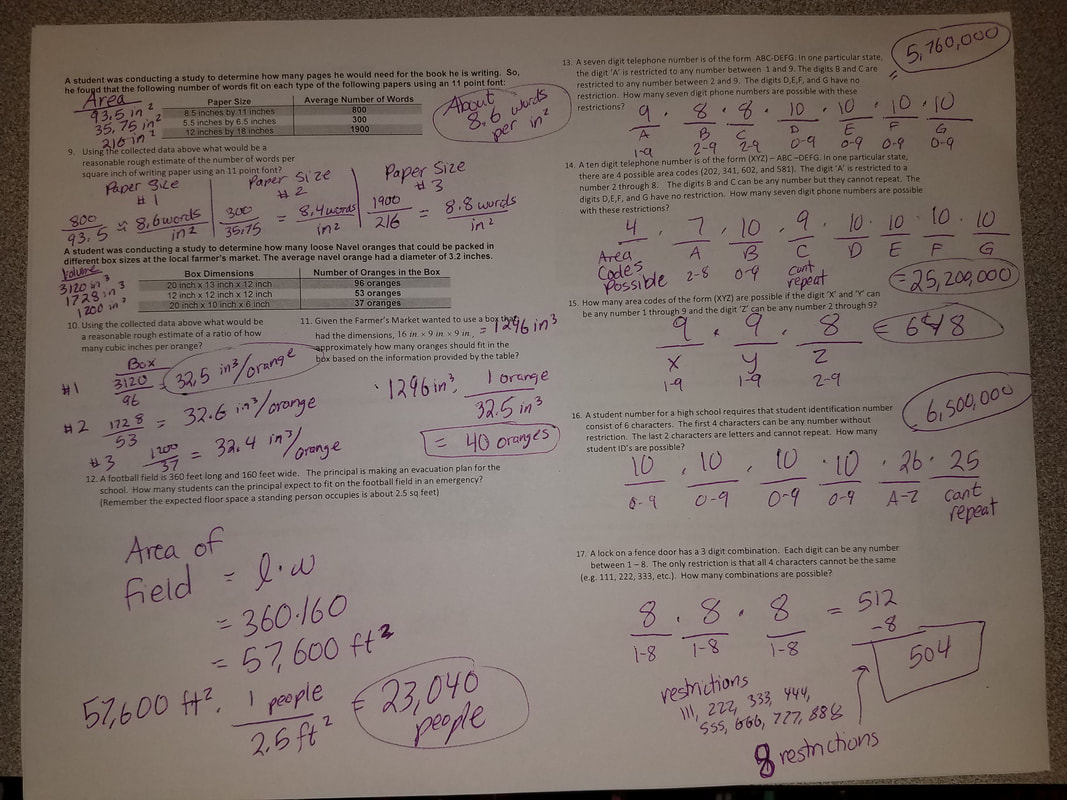 A student was conducting a study to determine how many pages he would need for the book he is writing. So,
he found that the following number of words fit on each type of the following papers using an 11 point font:
Area
93.5 in²
35.75 in²
216 in²
Paper Size Average Number of Words
8.5 inches by 11 inches 800
5.5 inches by 6.5 inches 300
12 inches by 18 inches 1900
About
8.6 words
per in²
9. Using the collected data above what would be a
reasonable rough estimate of the number of words per
square inch of writing paper using an 11 point font?
Paper Size
#1
800/93.5 ≈ 8.6 words/in²
Paper Size
#2
300/35.75 = 8.4 words/in²
Paper Size
#3
1900/216 = 8.8 words/in²
A student was conducting a study to determine how many loose Navel oranges that could be packed in
different box sizes at the local farmer's market. The average navel orange had a diameter of 3.2 inches.
Volume
3120 in³
1728 in³
1200 in³
Box Dimensions Number of Oranges in the Box
20 inch x 13 inch x 12 inch 96 oranges
12 inch x 12 inch x 12 inch 53 oranges
20 inch x 10 inch x 6 inch 37 oranges
10. Using the collected data above what would be
a reasonable rough estimate of a ratio of how
many cubic inches per orange?
Box
#1 3120/96 = 32.5 in³/orange
#2 1728/53 = 32.6 in³/orange
#3 1200/37 = 32.4 in³/orange
11. Given the Farmer's Market wanted to use a box that
had the dimensions, 16 in. × 9 in. × 9 in., = 1296 in³
approximately how many oranges should fit in the
box based on the information provided by the table?
1296 in³ · 1 orange/32.5 in³
= 40 oranges
12. A football field is 360 feet long and 160 feet wide. The principal is making an evacuation plan for the
school. How many students can the principal expect to fit on the football field in an emergency?
(Remember the expected floor space a standing person occupies is about 2.5 sq feet)
Area of
field = l·w
= 360·160
= 57,600 ft²
57,600 ft² · 1 people/2.5 ft² = 23,040
people
13. A seven digit telephone number is of the form ABC-DEFG. In one particular state,
the digit 'A' is restricted to any number between 1 and 9. The digits B and C are
restricted to any number between 2 and 9. The digits D,E,F, and G have no
restriction. How many seven digit phone numbers are possible with these
restrictions?
= 5,760,000
9 · 8 · 8 · 10 · 10 · 10 · 10
A B C D E F G
1-9 2-9 2-9 0-9 0-9 0-9 0-9
14. A ten digit telephone number is of the form (XYZ) – ABC –DEFG. In one particular state,
there are 4 possible area codes (202, 341, 602, and 581). The digit 'A' is restricted to a
number 2 through 8. The digits B and C can be any number but they cannot repeat. The
digits D,E,F, and G have no restriction. How many seven digit phone numbers are possible
with these restrictions?
4 · 7 · 10 · 9 · 10 · 10 · 10 · 10
Area A B C D E F G
Codes 2-8 0-9 cant
Possible repeat
= 25,200,000
15. How many area codes of the form (XYZ) are possible if the digit 'X' and 'Y' can
be any number 1 through 9 and the digit 'Z' can be any number 2 through 9?
9 · 9 · 8 = 648
X Y Z
1-9 1-9 2-9
16. A student number for a high school requires that student identification number
consist of 6 characters. The first 4 characters can be any number without
restriction. The last 2 characters are letters and cannot repeat. How many
student ID's are possible?
6,500,000
10 · 10 · 10 · 10 · 26 · 25
0-9 0-9 0-9 0-9 A-Z cant
repeat
17. A lock on a fence door has a 3 digit combination. Each digit can be any number
between 1 – 8. The only restriction is that all 4 characters cannot be the same
(e.g. 111, 222, 333, etc.). How many combinations are possible?
8 · 8 · 8 = 512
1-8 1-8 1-8 -8
504
restrictions
111, 222, 333, 444,
555, 666, 777, 888
8 restrictions